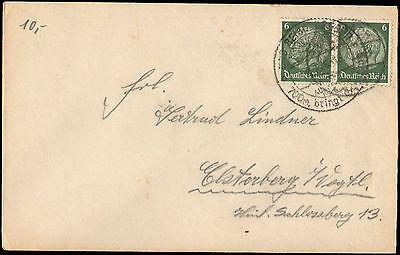 10,-
6 6
Deutsches Reich Deutsches Reich
Frl.
Gertrud Lindner
Elsterberg i/Vogtl.
Schlossberg 13.